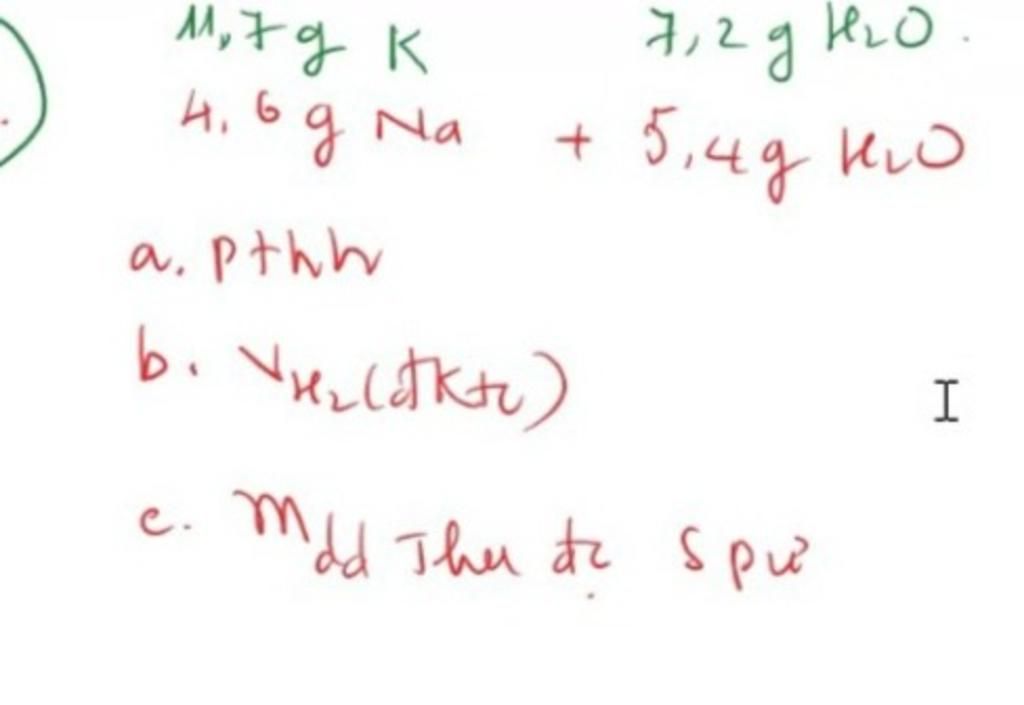 11,7g K 7,2g H₂O.
4,6g Na + 5,4g H₂O
a. pthh
b. VH₂(đktc)
c. mdd Thu đc spứ